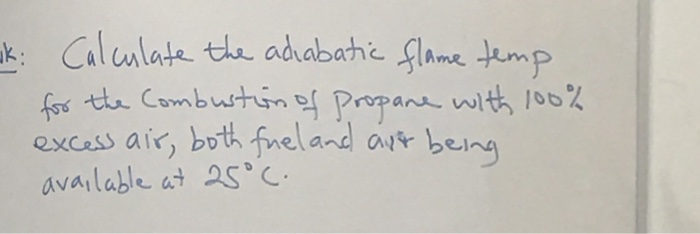 k: Calculate the adiabatic flame temp
for the Combustion of propane with 100%
excess air, both fuel and air being
available at 25°C.